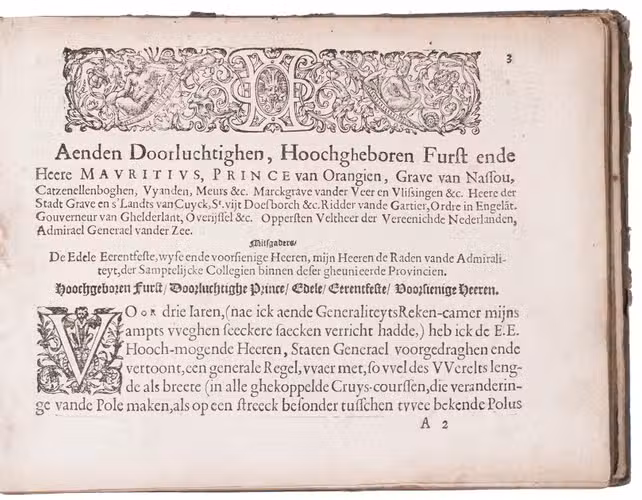 3
Aenden Doorluchtighen, Hoochgheboren Furst ende
Heere MAVRITIVS, PRINCE van Orangien, Grave van Nassou,
Catzenellenboghen, Vyanden, Meurs &c. Marckgrave vander Veer en Vlissingen &c. Heere der
Stadt Grave en s'Landts van Cuyck, St. vijt Doesborch &c. Ridder vande Gartier, Ordre in Engelāt.
Gouverneur van Ghelderlant, Overijssel &c. Oppersten Veltheer der Vereenichde Nederlanden,
Admirael Generael vander Zee.
Mitsgaders/
De Edele Eerentfeste, wyse ende voorsienige Heeren, mijn Heeren de Raden vande Admirali-
teyt, der Samptelijcke Collegien binnen deser gheunieerde Provincien.
Hoochgeboren Furst/ Doorluchtighe Prince/ Edele/ Eerentfeste/ Voorsienige Heeren.
VOor drie Iaren, (nae ick aende GeneraliteytsReken-camer mijns
ampts vveghen seeckere saecken verricht hadde,) heb ick de E.E.
Hooch-mogende Heeren, Staten Generael voorgedraghen ende
vertoont, een generale Regel, vvaer met, so vvel des VVerelts leng-
de als breete (in alle ghekoppelde Cruys-courssen, die veranderin-
ge vande Pole maken, als op een streeck besonder tusschen tvvee bekende Polus
A 2